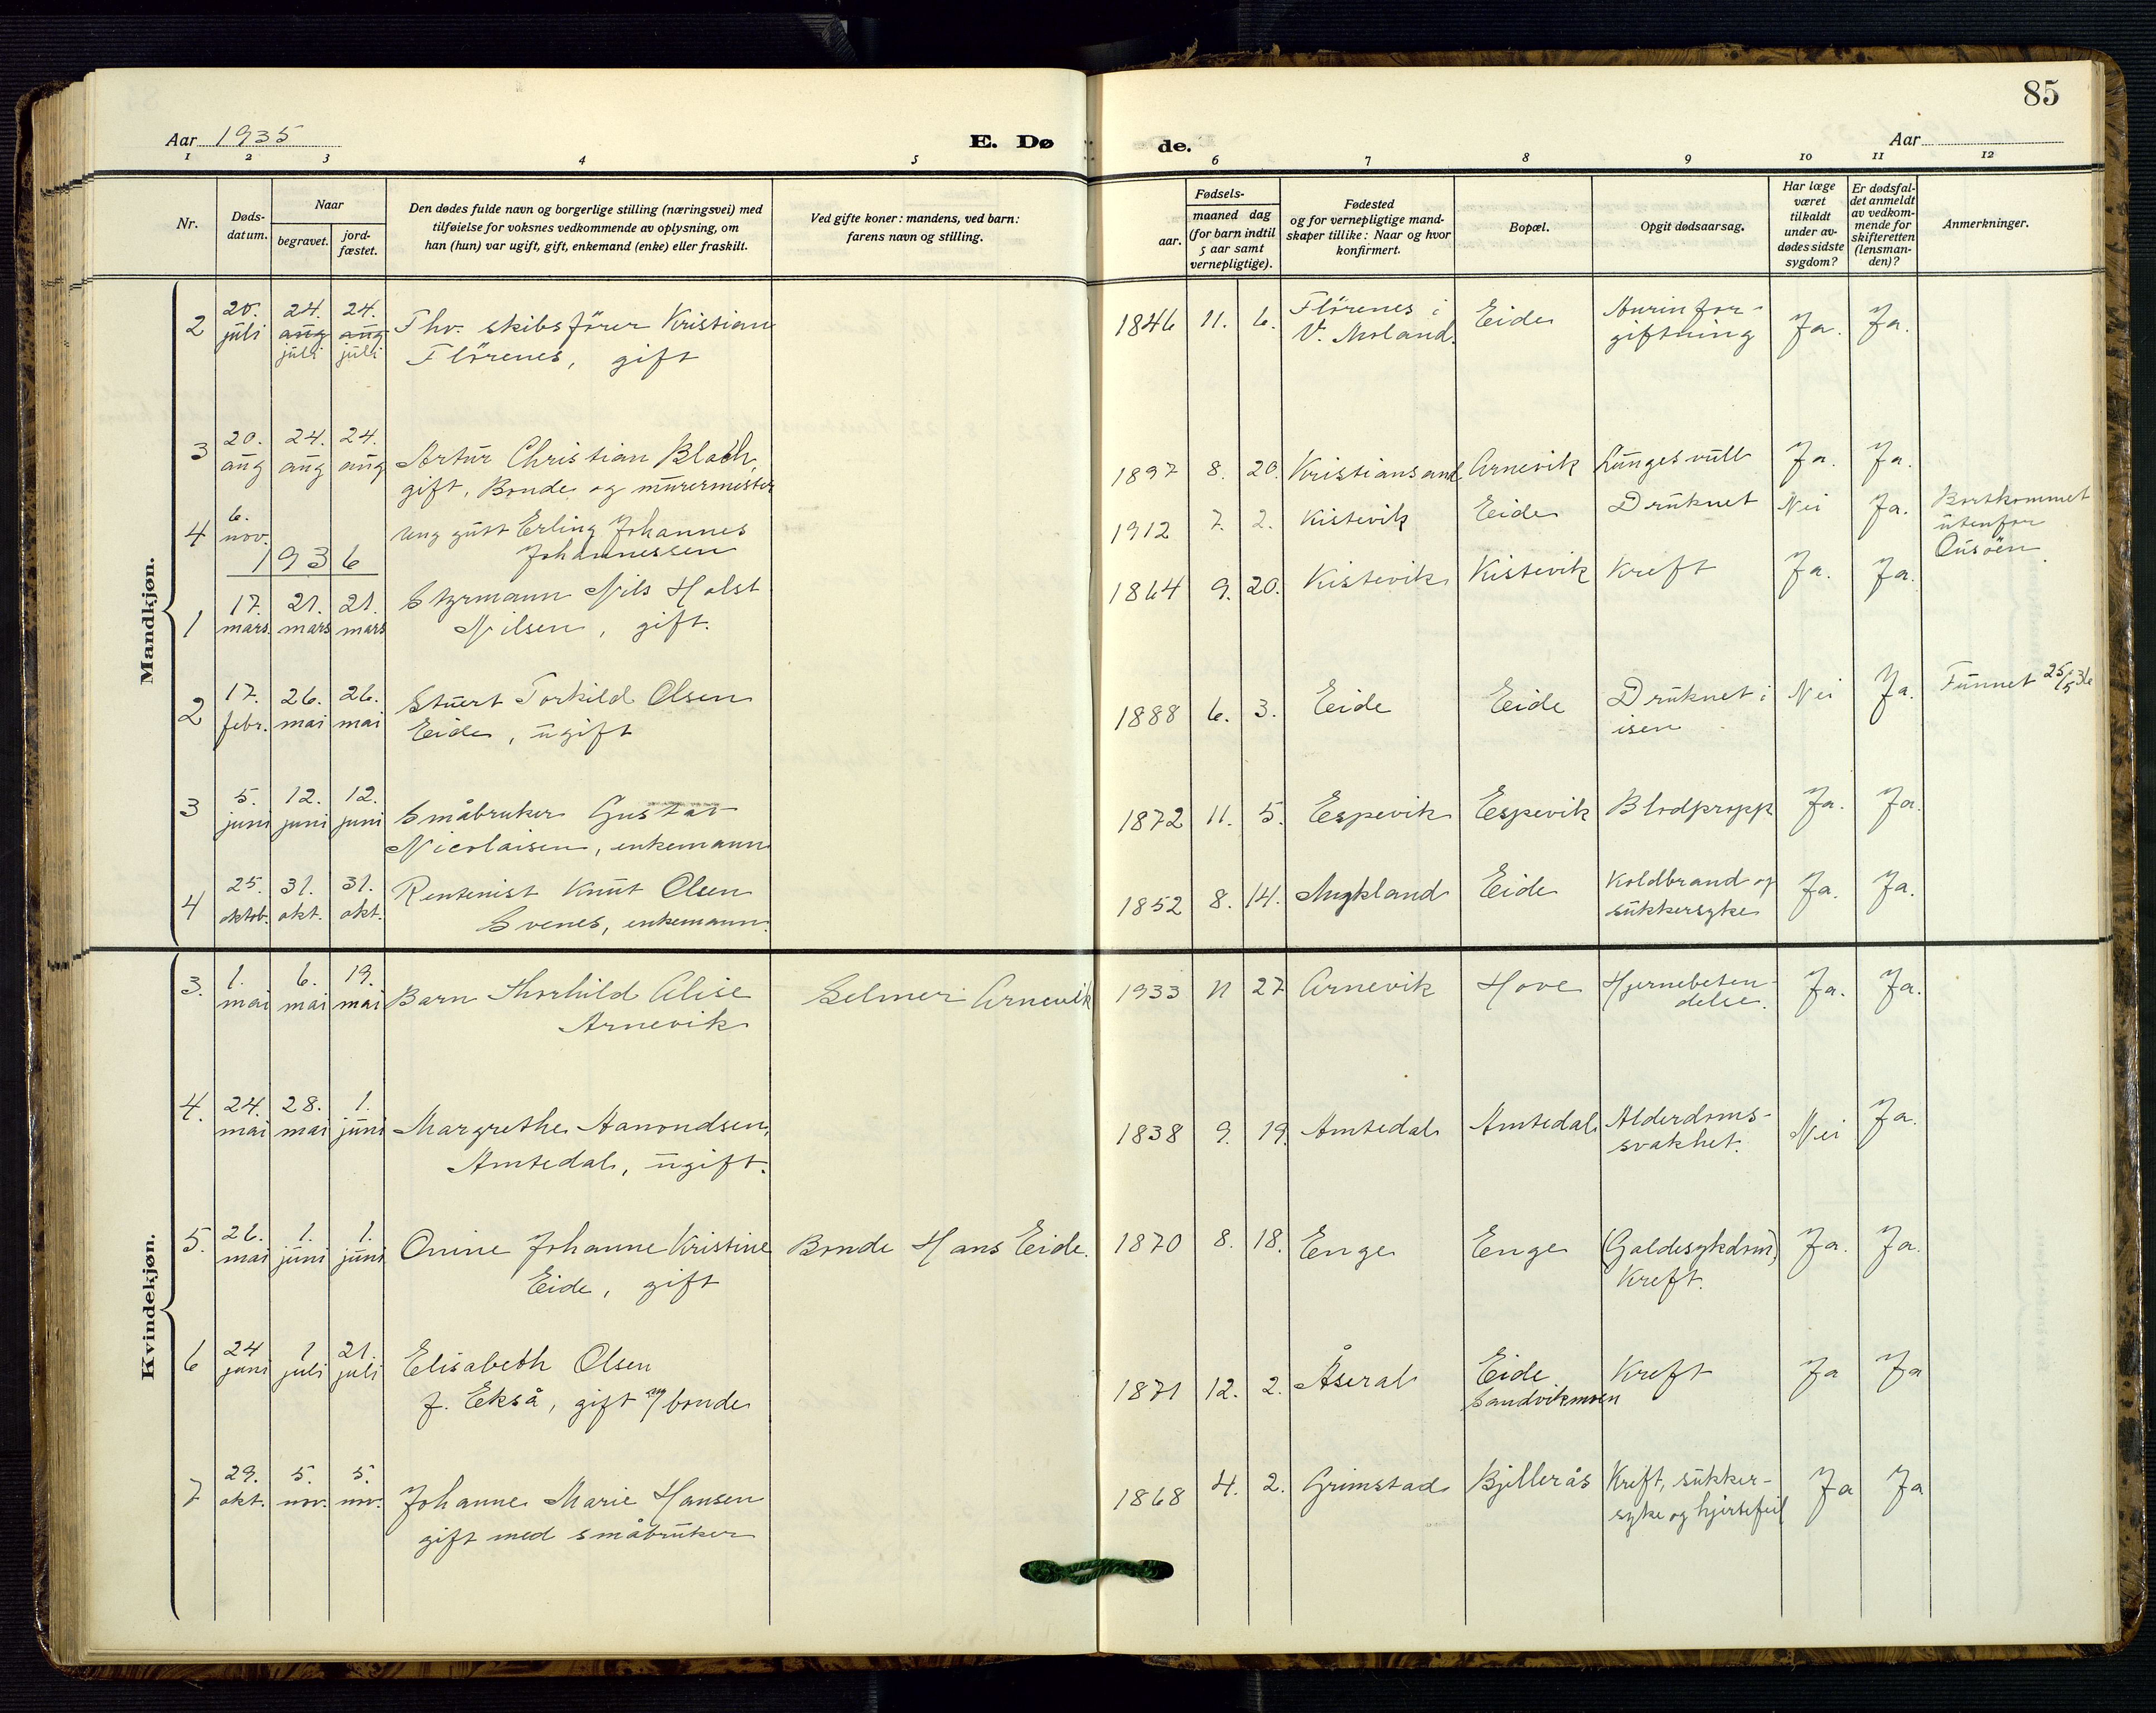 85
Aar 1935
E. Dø
de.
Aar
1 2 3 4 5 6 7 8 9 10 11 12
Nr.
Døds-
datum.
Naar
begravet.
jord-
fæstet.
Den dødes fulde navn og borgerlige stilling (næringsvei) med
tilføielse for voksnes vedkommende av oplysning, om
han (hun) var ugift, gift, enkemand (enke) eller fraskilt.
Ved gifte koner: mandens, ved barn:
farens navn og stilling.
Fødsels-
aar.
maaned dag
(for barn indtil
5 aar samt
vernepligtige).
Fødested
og for vernepligtige mand-
skaper tillike: Naar og hvor
konfirmert.
Bopæl.
Opgit dødsaarsag.
Har læge
været
tilkaldt
under av-
dødes sidste
sygdom?
Er dødsfal-
det anmeldt
av vedkom-
mende for
skifteretten
(lensman-
den)?
Anmerkninger.
Mandkjøn.
2 20. juli 24. aug juli 24. aug juli Fhv. skibsfører Kristian
Flörenes, gift
1846 11. 6. Flörenes i
V. Moland. Eide Aurinfor-
giftning Ja. Ja.
3 20. aug 24. aug 24. aug Artur Christian Bloch,
gift, Bonde og murermester
1897 8. 20. Kristiansand Arnevik Lungesvull Ja. Ja.
4 6. nov. Ung gutt Erling Johannes
Johannessen
1912 7. 2. Kistevik Eide Druknet Nei Ja. Bortkommet
utenfor
1936
1 17. mars. 21. mars 21. mars Styrmann Nils Holst
Nilsen, gift.
1864 9. 20. Kistevik Kistevik Kreft Ja. Ja.
2 17. febr. 26. mai 26. mai Stuert Torkild Olsen
Eide, ugift
1888 6. 3. Eide Eide Druknet i
isen Nei Ja. Funnet 25/5 36
3 5. juni 12. juni 12. juni Småbruker Gustav
Nicolaisen, enkemann
1872 11. 5. Espevik Espevik Blodpropp Ja. Ja.
4 25. oktob. 31. okt. 31. okt. Rentenist Knut Olsen
Svenes, enkemann.
1852 8. 14. Mykland Eide Koldbrand og
sukkersyke Ja. Ja.
Kvindekjøn.
3. 1. mai 6. mai 19. mai Barn Thorhild Alise
Arnevik
Selmer Arnevik 1933 11 27 Arnevik Hove Hjernebeten-
delse. Ja. Ja.
4. 24. mai 28. mai 1. juni Margrethe Aamondsen,
Amtedal, ugift.
1838 9. 19. Amtedal Amtedal Alderdoms-
svakhet. Nei Ja.
5. 26. mai 1. juni 1. juni Onine Johanne Kristine
Eide, gift
Bonde Hans Eide. 1870 8. 18. Enge Enge (Galdesykdom)
Kreft. Ja. Ja.
6 24 juni 1 juli 21. juli Elisabeth Olsen
f. Ekså, gift m/ bonde
1871 12. 2. Åseral Eide
Sandvikmoen Kreft Ja Ja
7 29. okt. 5. nov. 5. nov. Johanne Marie Hansen
gift med småbruker
1868 4. 2. Grimstad Bjellerås Kreft, sukker-
syke og hjertefeil Ja Ja